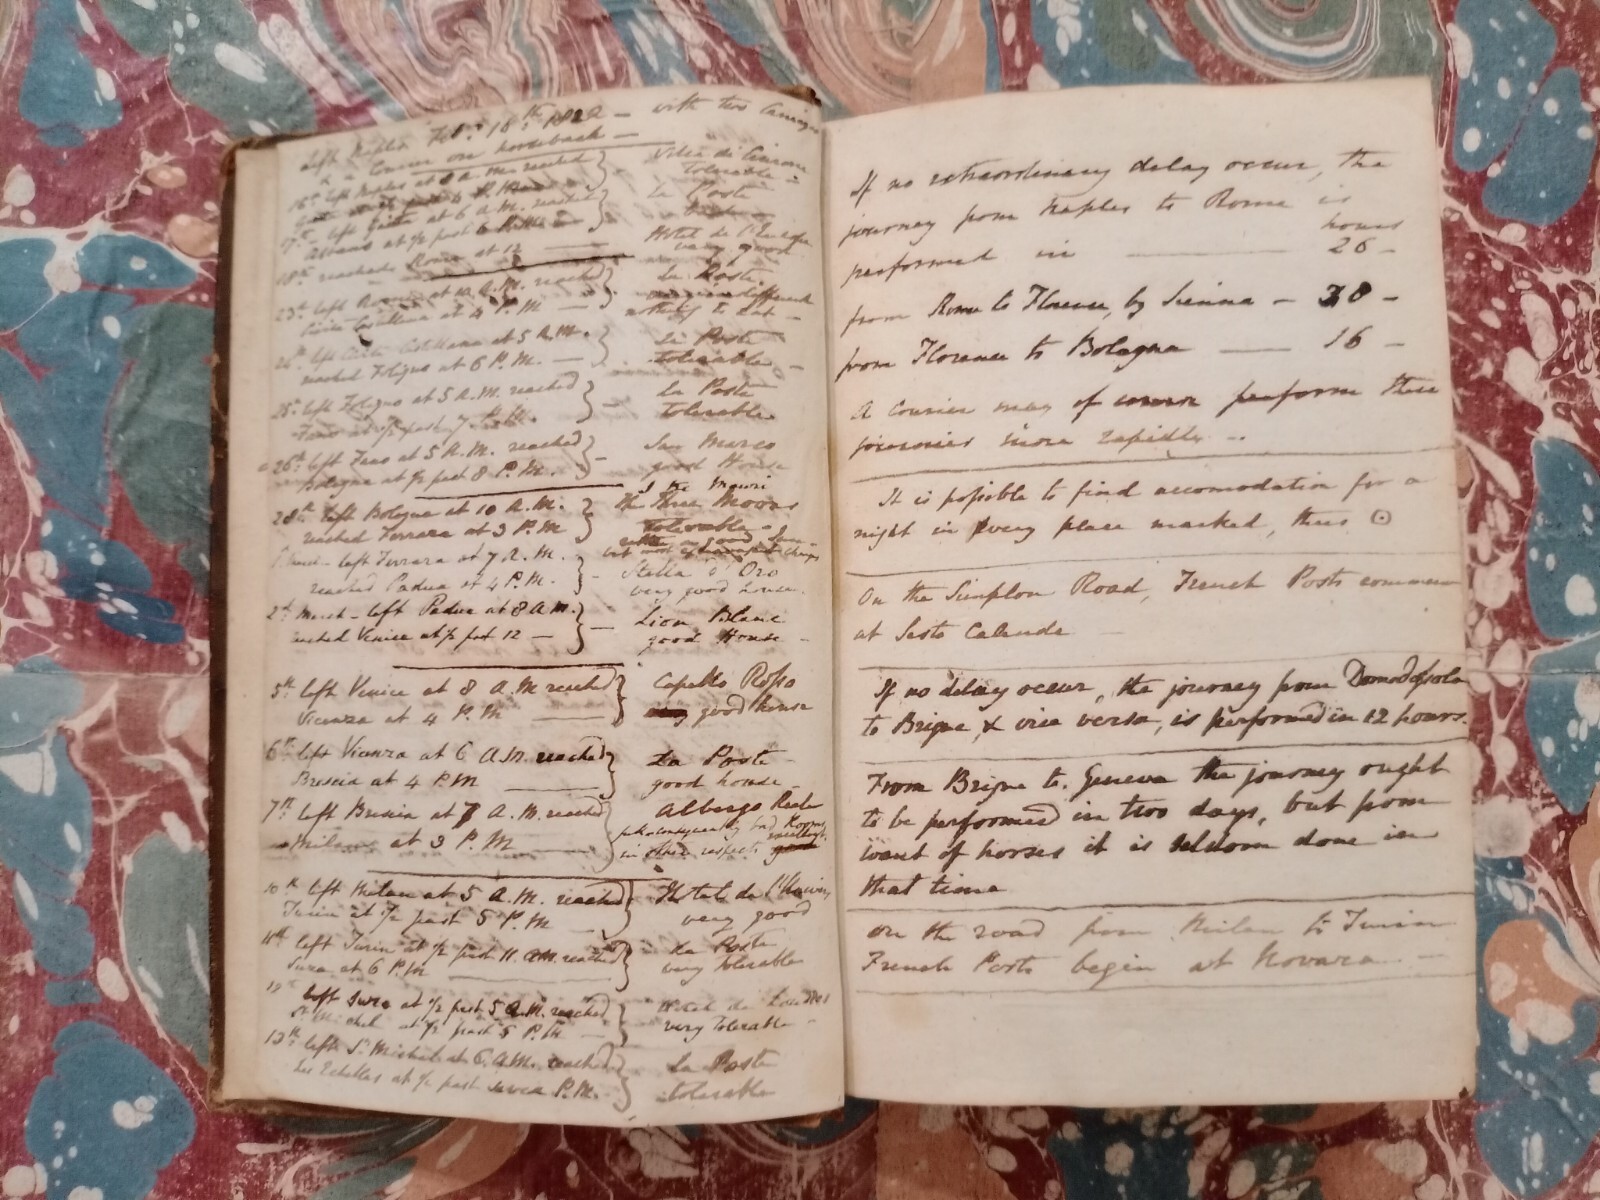 left Naples Feb. 16th 182 — with two Carriages
& a Courier on horseback —
16th left Naples at 8 A.M. reached } Villa di Cicerone
tolerable —
17th left Gaeta at 6 A.M. reached } La Poste
Albano at ½ past 6 P.M.
18th reached Rome at 12 — Hotel de l'Europe
very good
23d left Rome at 10 A.M. reached } La Poste
Civita Castellana at 4 P.M — indifferent
nothing to eat —
24th left Civita Castellana at 5 A.M. } La Poste
reached Foligno at 6 P.M. — tolerable —
25th left Foligno at 5 A.M. reached } — La Poste
Fano at ½ past 7 P.M. tolerable
26th left Fano at 5 A.M. reached } — San Marco
Bologna at ½ past 8 P.M. good House
I tre Mauri
28th left Bologna at 10 A.M. } the Three Moors
reached Ferrara at 3 P.M tolerable —
but most
1 March — left Ferrara at 7 A.M. } — Stella d'Oro
reached Padua at 4 P.M. very good house.
2d March — left Padua at 8 A.M. } — Lion Blanc
reached Venice at ½ past 12 — good House —
5th left Venice at 8 A.M reached } Capello Rosso
Vicenza at 4 P.M — very good house
6th left Vicenza at 6 A.M. reached } La Poste
Brescia at 4 P.M — good house
7th left Brescia at 7 A.M. reached } Albergo Reale
Milan at 3 P.M — bad Rooms
in other respects good
10th left Milan at 5 A.M. reached } Hotel de l'Univers
Turin at ½ past 5 P.M — very good
11th left Turin at ½ past 11 A.M. reached } La Poste
Suza at 6 P.M — very tolerable
12 left Suza at ½ past 5 A.M. reached } Hotel de Londres
St Michel at ½ past 5 P.M — very tolerable —
13th left St Michel at 6 A.M. reached } La Poste
Les Echelles at ½ past seven P.M. tolerable
If no extraordinary delay occur, the
journey from Naples to Rome is
hours
performed in — 26 —
from Rome to Florence, by Sienna — 38 —
from Florence to Bologna — 16 —
A Courier may of course perform these
journies more rapidly —
It is possible to find accomodation for a
night in every place marked, thus ⊙
On the Simplon Road, French Posts commence
at Sesto Calende —
If no delay occur, the journey from Domodossola
to Brigue, & vice versa, is performed in 12 hours.
From Brigue to Geneva the journey ought
to be performed in two days, but from
want of horses it is seldom done in
that time
On the road from Milan to Turin
French Posts begin at Novara —